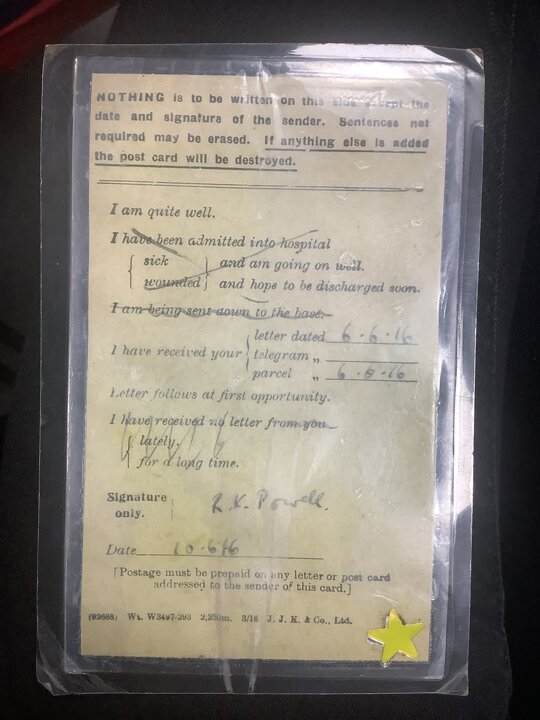 NOTHING is to be written on this side except the
date and signature of the sender. Sentences not
required may be erased. If anything else is added
the post card will be destroyed.
I am quite well.
I have been admitted into hospital
sick and am going on well.
wounded and hope to be discharged soon.
I am being sent down to the base.
letter dated 6-6-16
I have received your telegram „
parcel „ 6-6-16
Letter follows at first opportunity.
I have received no letter from you
lately.
for a long time.
Signature
only. Powell.
Date 10-6-16
[Postage must be prepaid on any letter or post card
addressed to the sender of this card.]
(99688) Wt. W3497-293 2,250m. 3/16 J. J. K. & Co., Ltd.